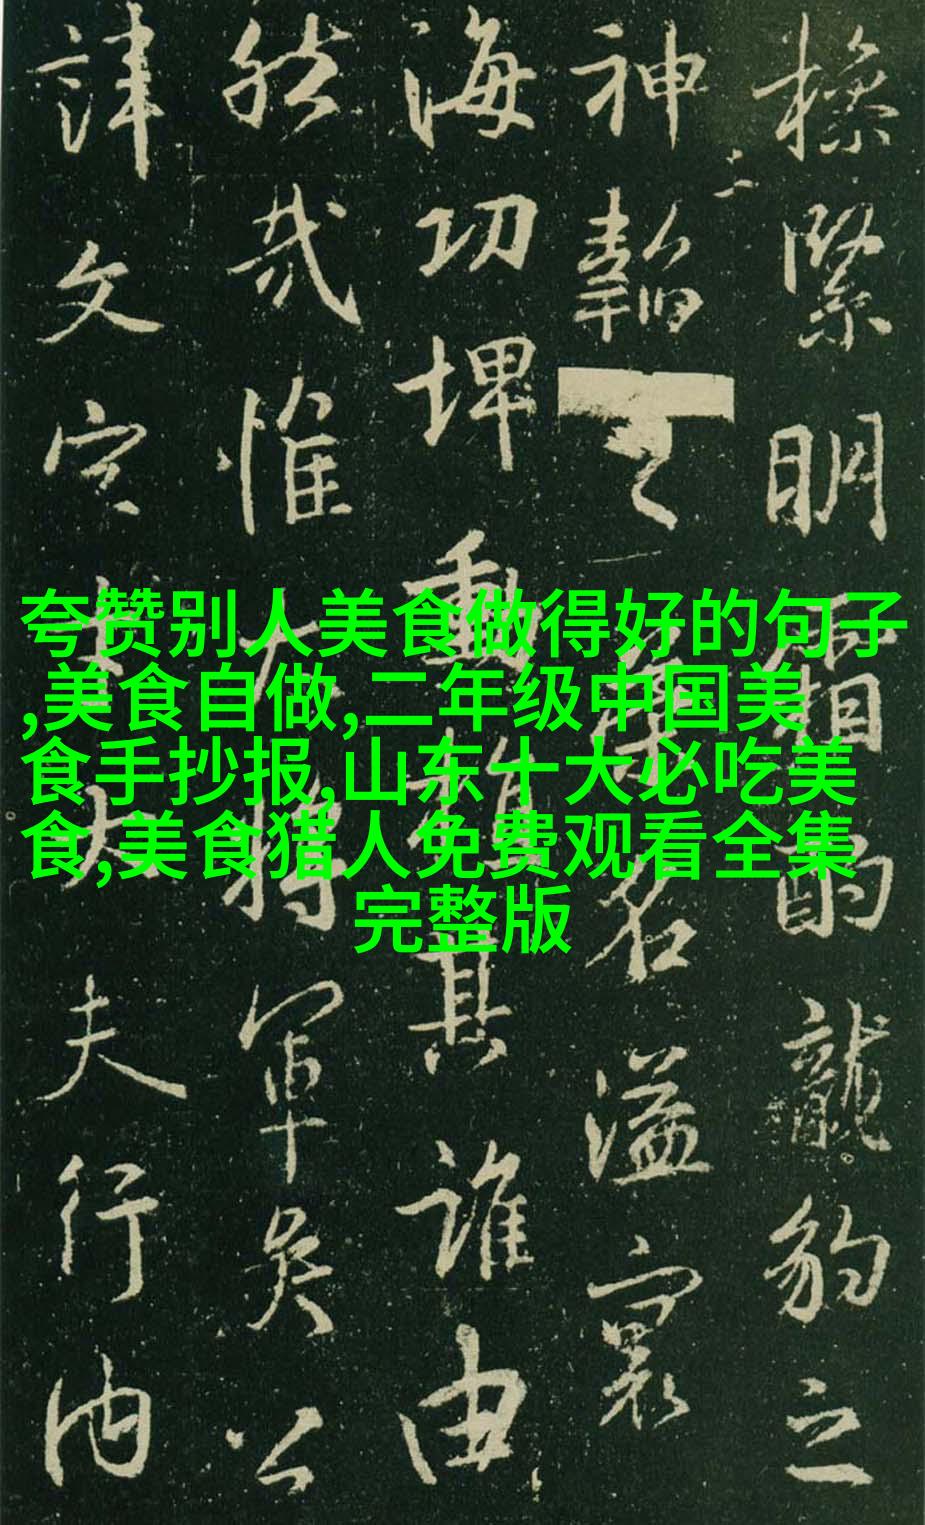 夸赞别人美食做得好的句子
,美食自做,二年级中国美
食手抄报,山东十大必吃美
食,美食猎人免费观看全集
完整版
操緊明智龍豹之
神韜名溢寰
海功埤動植其誰由
然哉惟大將軍矣公
諱文大夫行內